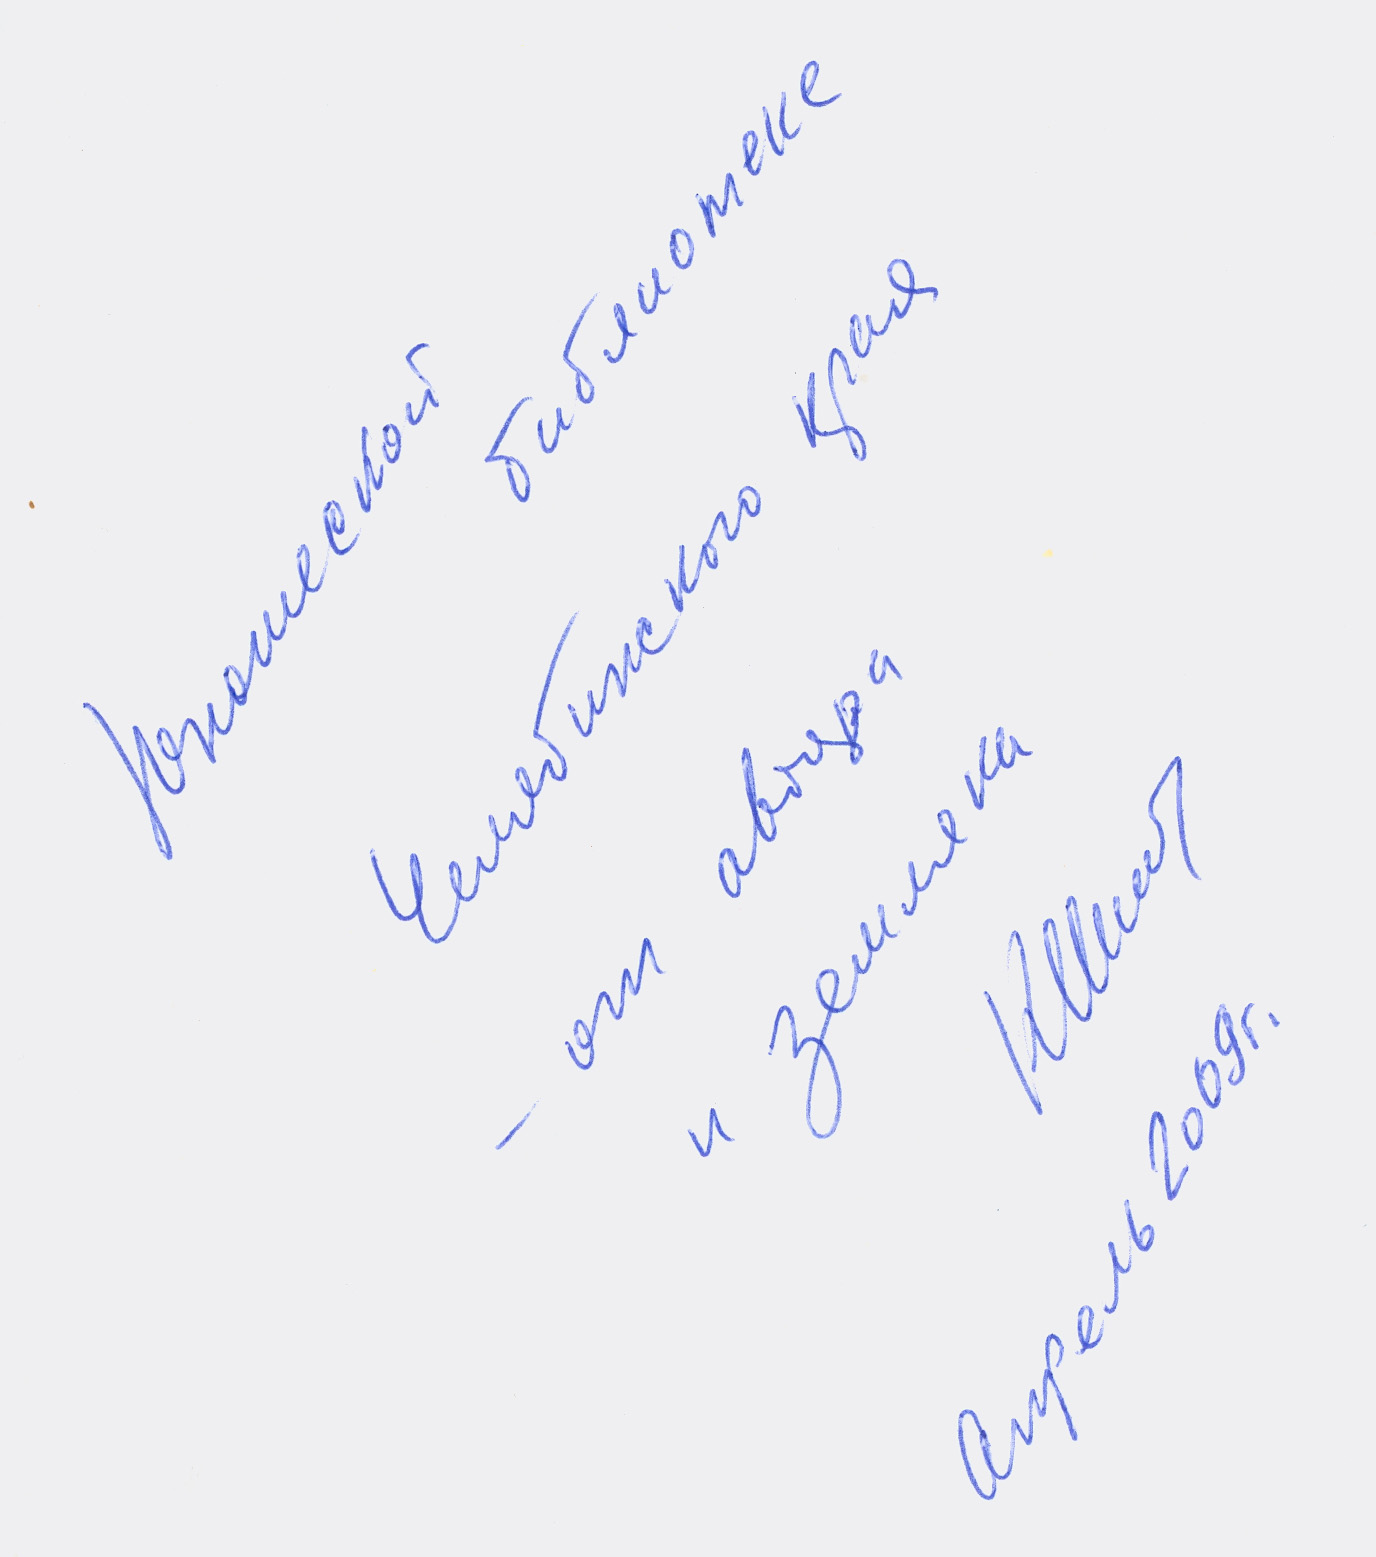 Юношеской библиотеке
Челябинского края
– от автора
и земляка
Апрель 2009г.